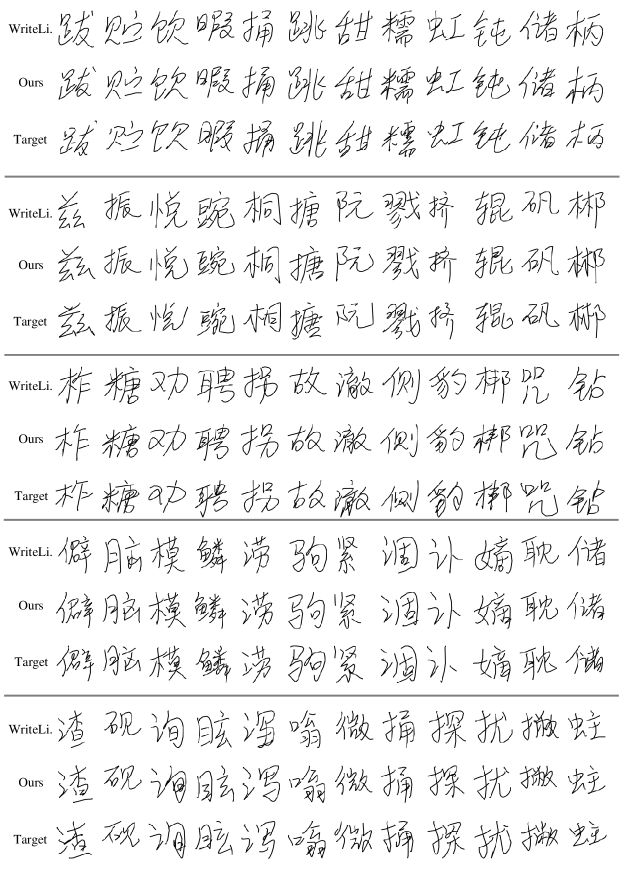 WriteLi. 跋 贮 饮 暇 捅 跳 甜 糯 虹 钝 储 柄
Ours 跋 贮 饮 暇 捅 跳 甜 糯 虹 钝 储 柄
Target 跋 贮 饮 暇 捅 跳 甜 糯 虹 钝 储 柄
WriteLi. 兹 振 悦 豌 桐 搪 阮 戮 挤 辊 矾 郴
Ours 兹 振 悦 豌 桐 搪 阮 戮 挤 辊 矾 郴
Target 兹 振 悦 豌 桐 搪 阮 戮 挤 辊 矾 郴
WriteLi. 柞 糖 劝 聘 拐 故 澈 侧 豹 梆 咒 钻
Ours 柞 糖 劝 聘 拐 故 澈 侧 豹 梆 咒 钻
Target 柞 糖 劝 聘 拐 故 澈 侧 豹 梆 咒 钻
WriteLi. 僻 脑 模 鳞 涝 驹 紧 涸 讣 嫡 耽 储
Ours 僻 脑 模 鳞 涝 驹 紧 涸 讣 嫡 耽 储
Target 僻 脑 模 鳞 涝 驹 紧 涸 讣 嫡 耽 储
WriteLi. 渣 砚 询 眩 泻 嗡 微 捅 探 扰 撇 蛀
Ours 渣 砚 询 眩 泻 嗡 微 捅 探 扰 撇 蛀
Target 渣 砚 询 眩 泻 嗡 微 捅 探 扰 撇 蛀